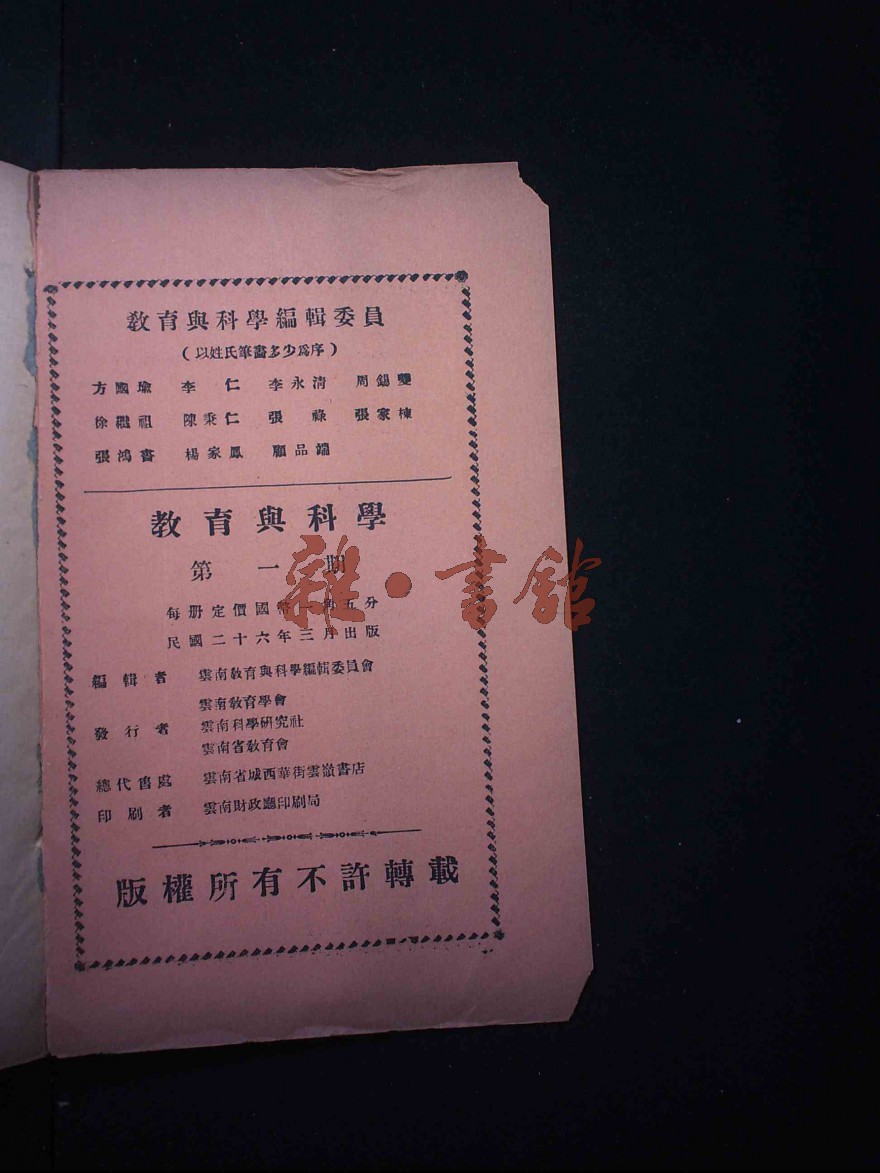 教育與科學編輯委員
（以姓氏筆畫多少爲序）
方國瑜 李仁 李永清 周錫夔
徐繼祖 陳秉仁 張祿 張家棟
張鴻書 楊家鳳 顧品端
教育與科學
第一期
每册定價國幣一角五分
民國二十六年三月出版
編輯者 雲南教育與科學編輯委員會
雲南教育學會
發行者 雲南科學研究社
雲南省教育會
總代售處 雲南省城西華街雲嶺書店
印刷者 雲南財政廳印刷局
版權所有不許轉載
雜·書館